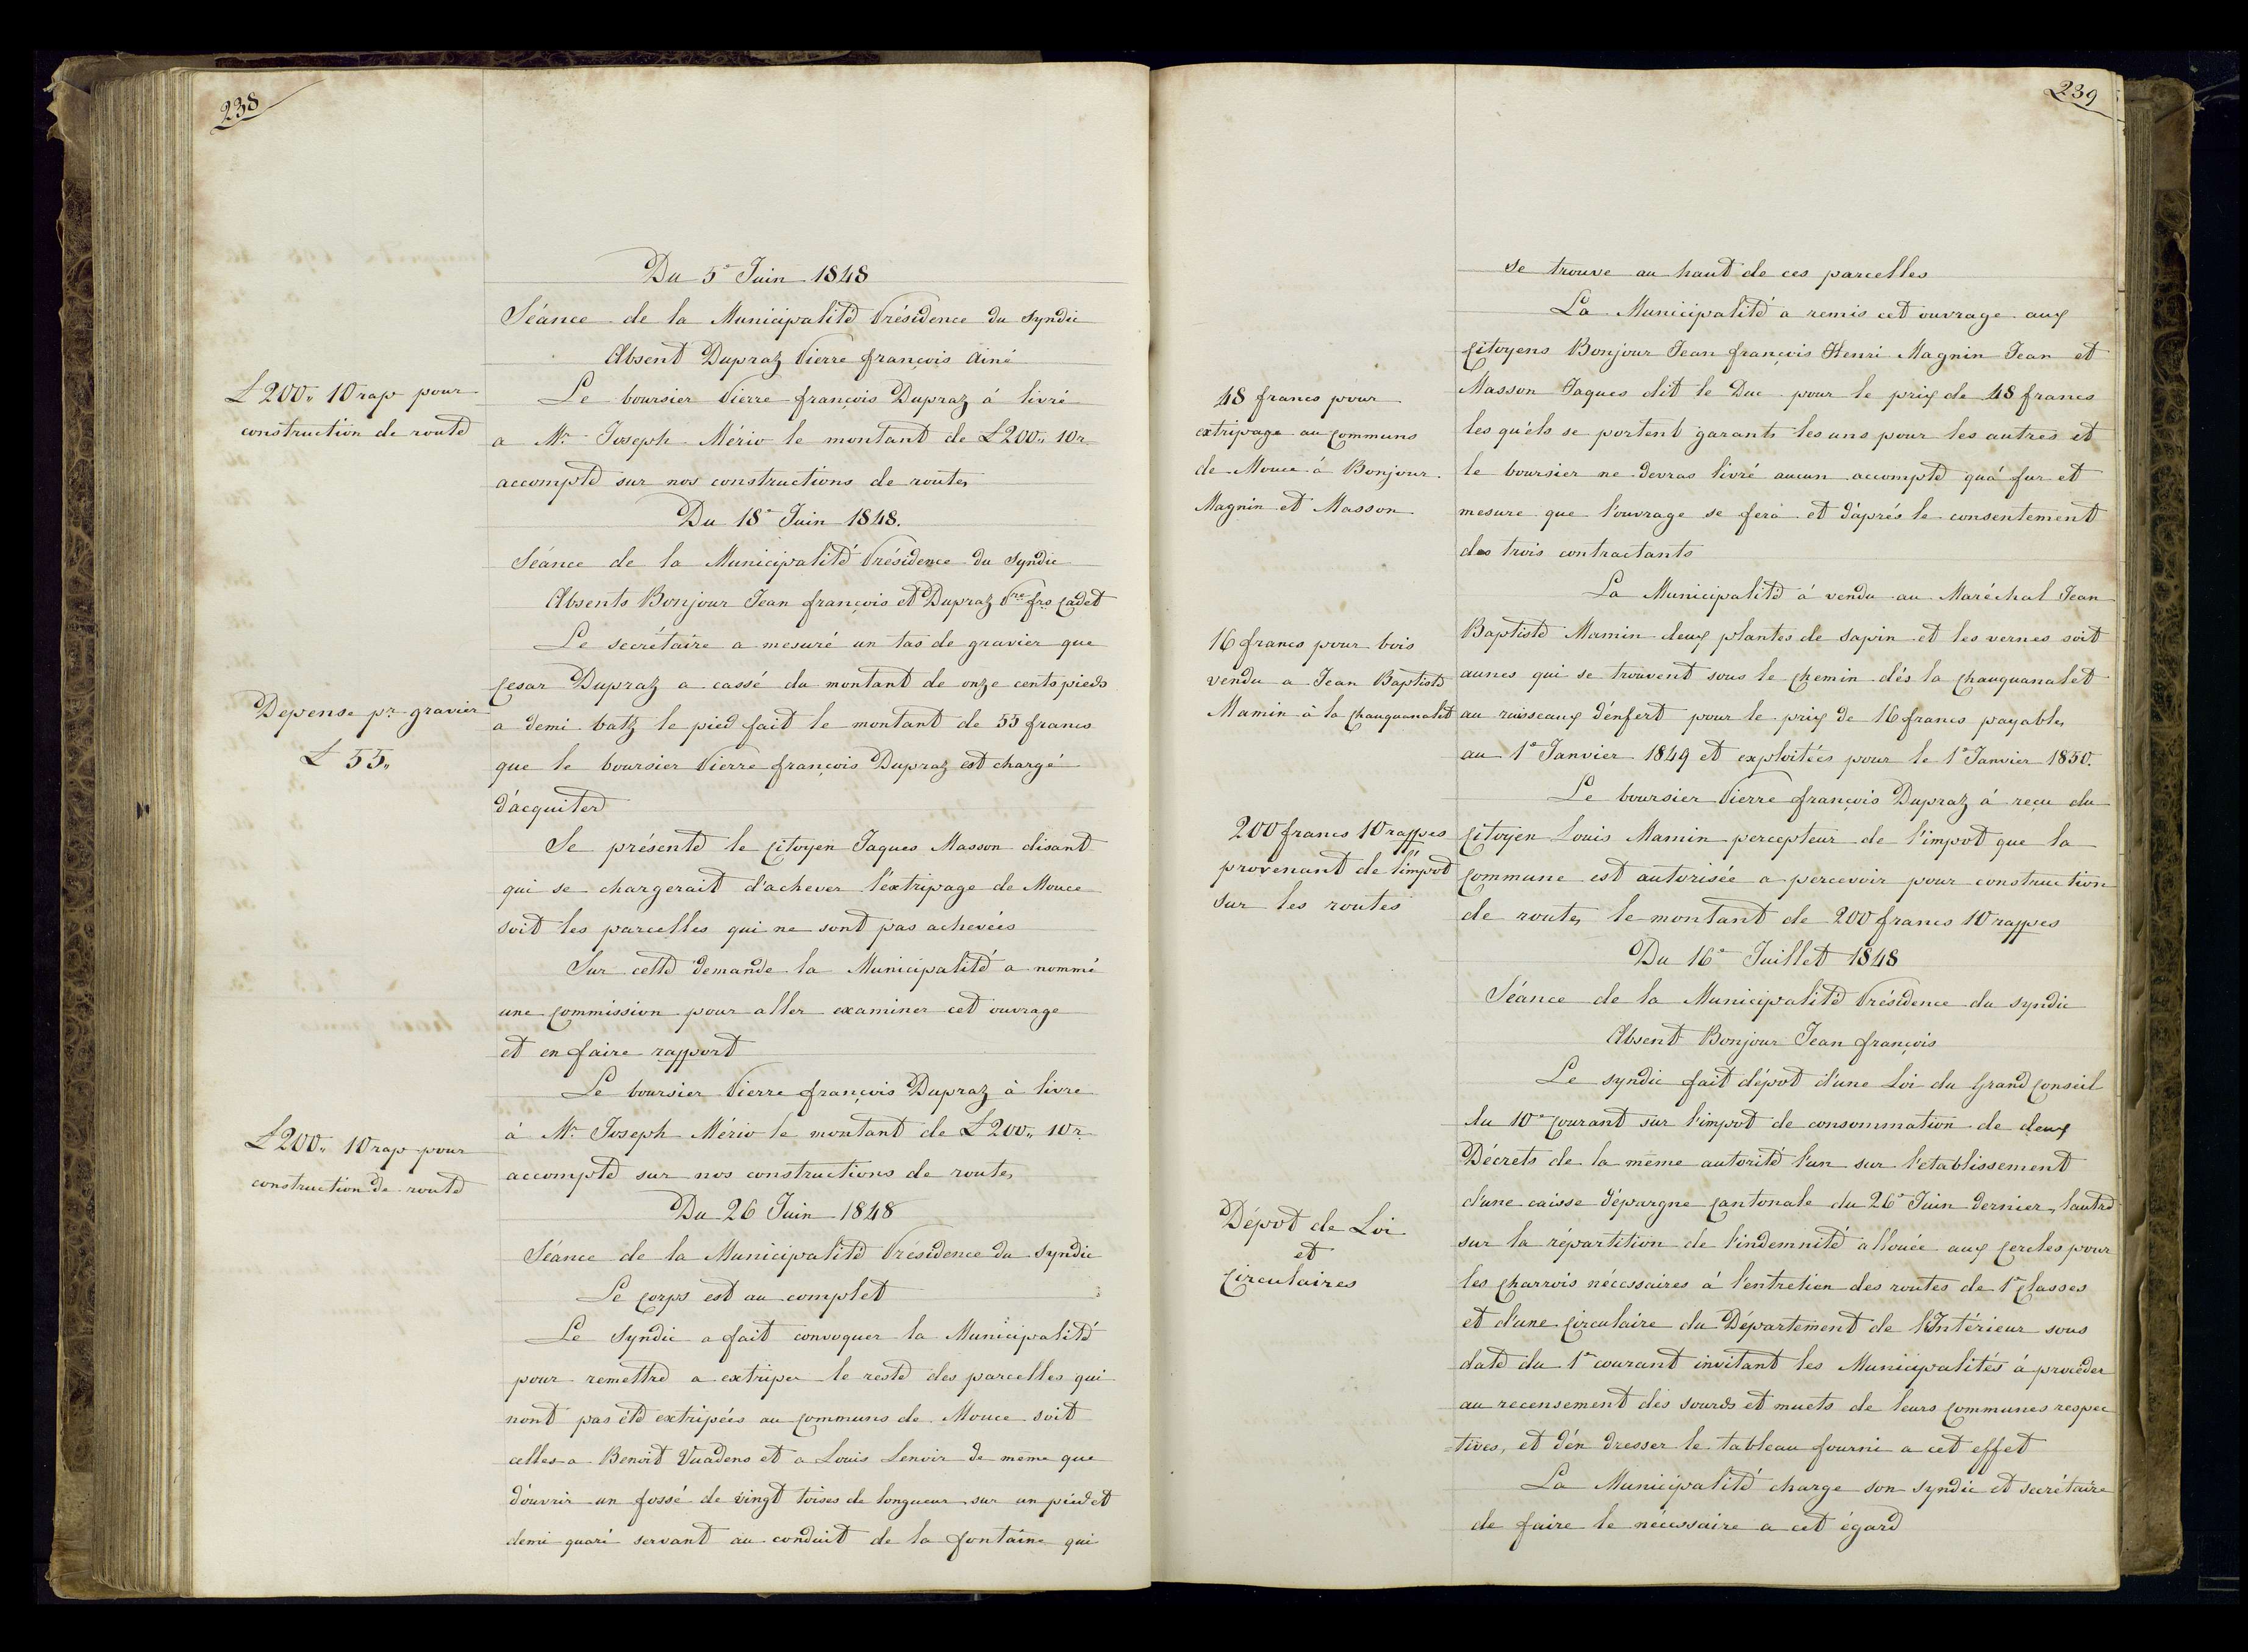 238
Du 5e Juin 1848
Séance de la Municipalité Présidence du Syndic
Absent Dupraz Pierre françois Ainé
£ 200,, 10 rap pour
construction de route
Le boursier Pierre françois Dupraz á livré
a Mr Joseph Mério le montant de £ 200,, 10 r
accompte sur nos constructions de routes
Du 18e Juin 1848.
Séance de la Municipalité Présidence du Syndic
Absents Bonjour Jean françois et Dupraz Pre frs Cadet
Le secrétaire a mesuré un tas de gravier que
Cesar Dupraz a cassé du montant de onze cents pieds
Depense pr gravier
£ 55,,
a demi batz le pied fait le montant de 55 francs
que le boursier Pierre françois Dupraz est chargé
d'acquiter
Se présente le Citoyen Jaques Masson disant
qui se chargerait d'achever l'extripage de Mouce
soit les parcelles qui ne sont pas achevées
Sur cette demande la Municipalité a nommé
une Commission pour aller examiner cet ouvrage
et en faire rapport
Le boursier Pierre françois Dupraz à livre
£ 200,, 10 rap pour
construction de route
á Mr Joseph Mério le montant de £ 200,, 10 r
accompte sur nos constructions de routes
Du 26 Juin 1848
Séance de la Municipalité Présidence du Syndic
Le Corps est au complet
Le Syndic a fait convoquer la Municipalité
pour remettre a extriper le reste des parcelles qui
nont pas été extripées au Communs de Mouce soit
celles a Benoit Vuadens et a Louis Lenoir de même que
d'ouvrir un fossé de vingt toises de longueur sur un pied et
demi quaré servant au conduit de la fontaine qui
239
se trouve au haut de ces parcelles
La Municipalité a remis cet ouvrage aux
Citoyens Bonjour Jean françois Henri Magnin Jean et
48 francs pour
extripage au Communs
de Mouce á Bonjour
Magnin et Masson
Masson Jaques dit le Duc pour le prix de 48 francs
les qu'els se portent garants les uns pour les autres et
le boursier ne devras livré aucun accompte quá fur et
mesure que l'ouvrage se fera et d'aprés le consentement
des trois contractants
La Municipalité á vendu au Maréchal Jean
16 francs pour bois
vendu a Jean Baptiste
Mamin á la Chauquanalet
Baptiste Mamin deux plantes de sapin et les vernes soit
aunes qui se trouvent sous le Chemin dés la Chauquanalet
au ruisseaux d'enfert pour le prix de 16 francs payables
au 1e Janvier 1849 et exploitées pour le 1e Janvier 1850.
Le boursier Pierre françois Dupraz á reçu du
200 francs 10 rappes
provenant de l'impot
sur les routes
Citoyen Louis Mamin percepteur de l'impot que la
Commune est autorisée a percevoir pour construction
de routes le montant de 200 francs 10 rappes
Du 16e Juillet 1848
Séance de la Municipalité Présidence du Syndic
Absent Bonjour Jean françois
Le syndic fait dépot d'une Loi du Grand Conseil
du 10e Courant sur l'impot de consommation de deux
Décrets de la même autorité l'un sur l'etablissement
Dépot de Loi
et
Circulaires
d'une caisse d'épargne Cantonale du 26e Juin dernier, lautre
sur la répartition de l'indemnité allouée aux Cercles pour
les Charrois nécessaires á l'entretien des routes de 1e Classes
et d'une Circulaire du Département de l'Intérieur sous
date du 1e courant invitant les Municipalités á procéder
au recensement des sourds et muets de leurs Communes respec
=tives, et d'en dresser le tableau fourni a cet effet
La Municipalité charge son syndic et secrétaire
de faire le nécessaire a cet égard